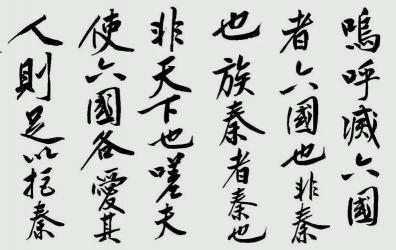 嗚呼滅六國
者六國也非秦
也族秦者秦也
非天下也嗟夫
使六國各愛其
人則足以拒秦